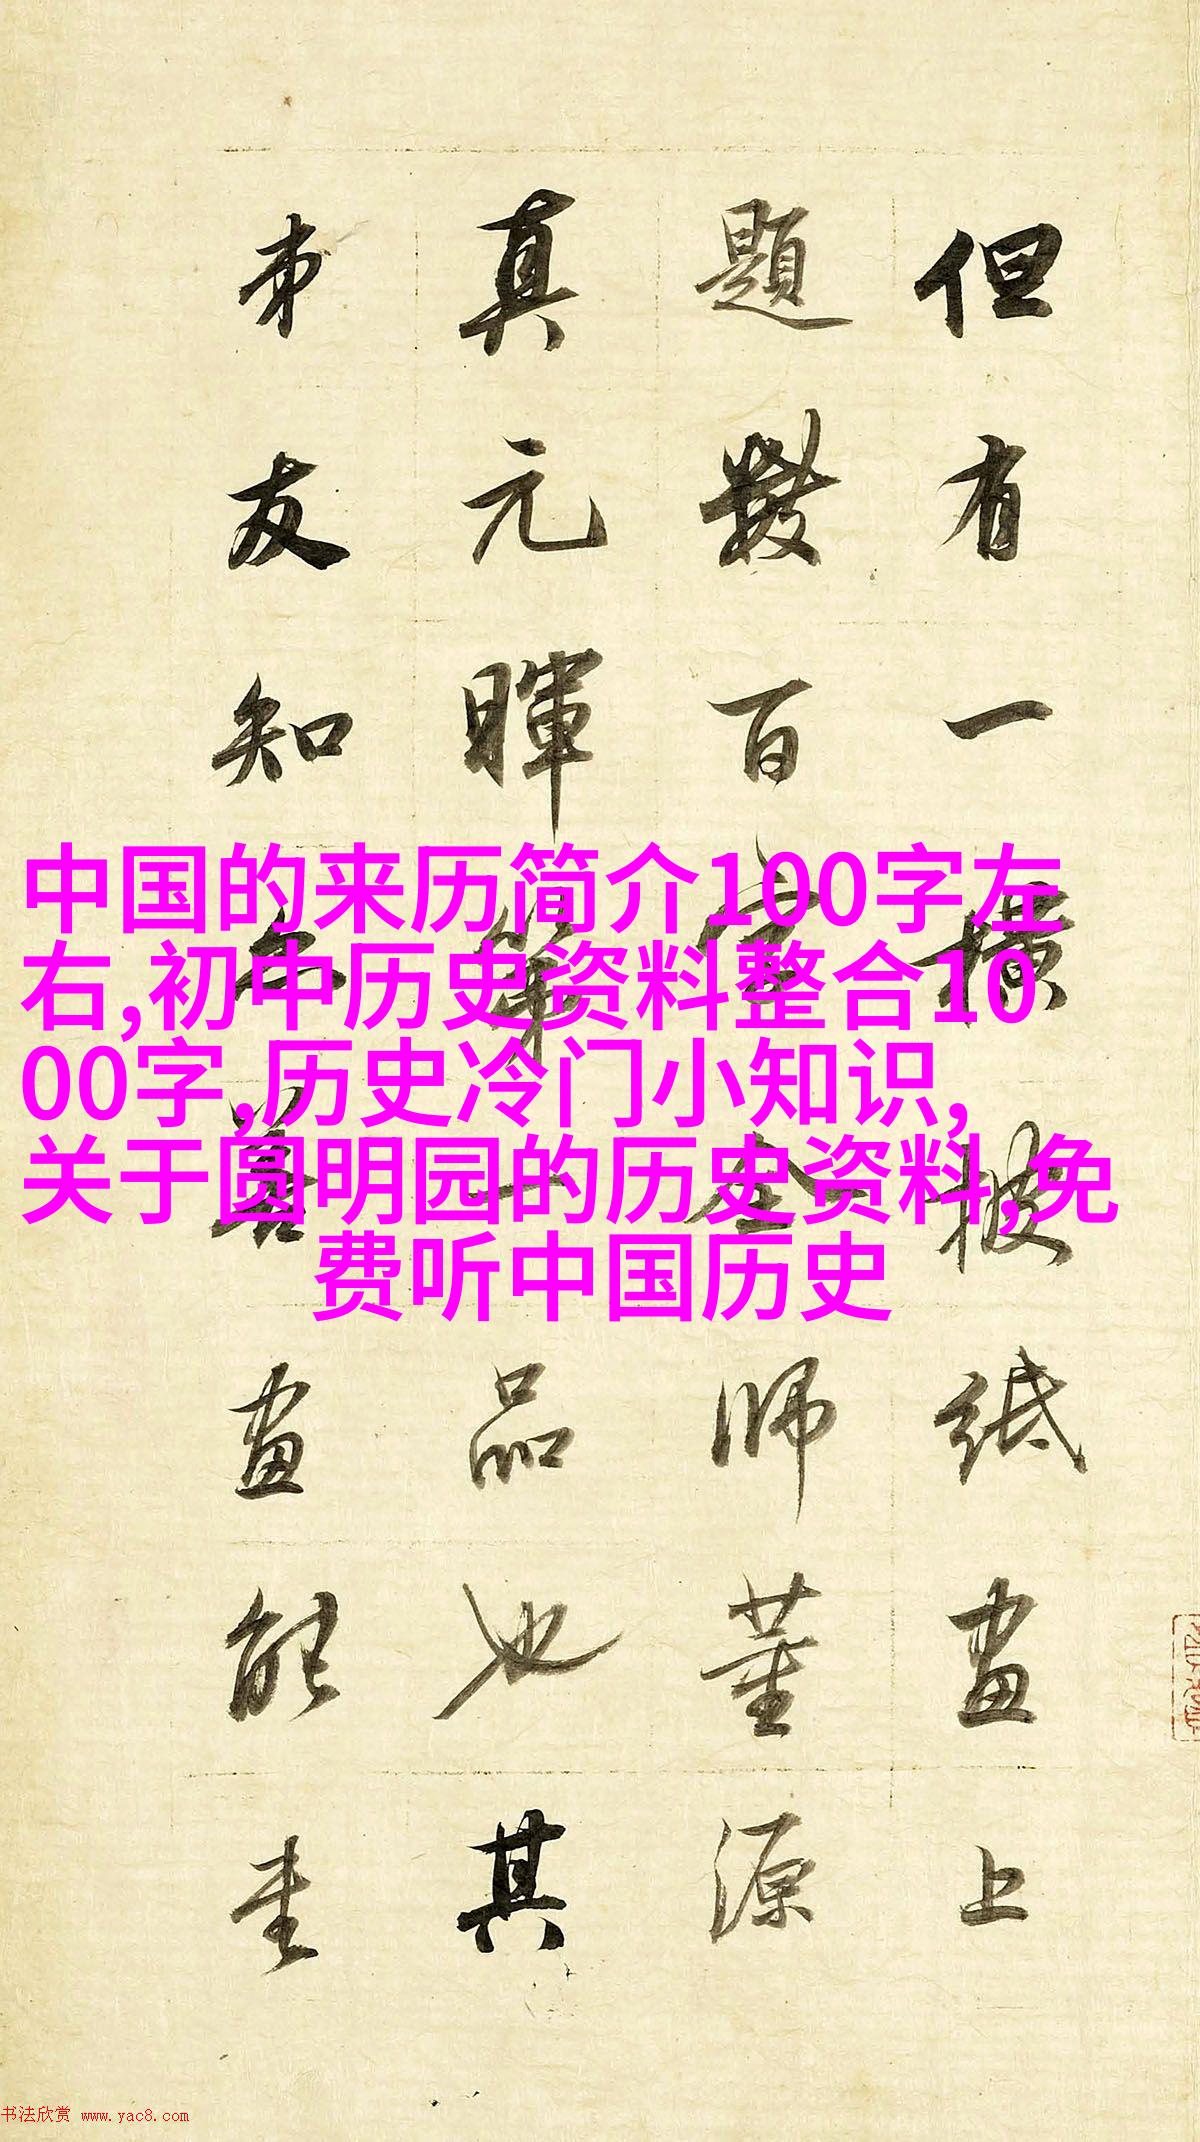 但有一橫披紙畫上
題數百字全師董源
真元暉第一品也其
弟友知善畫能
中国的来历简介100字左
右,初中历史资料整合10
00字,历史冷门小知识,
关于圆明园的历史资料,免
费听中国历史
书法欣赏 www.yac8.com